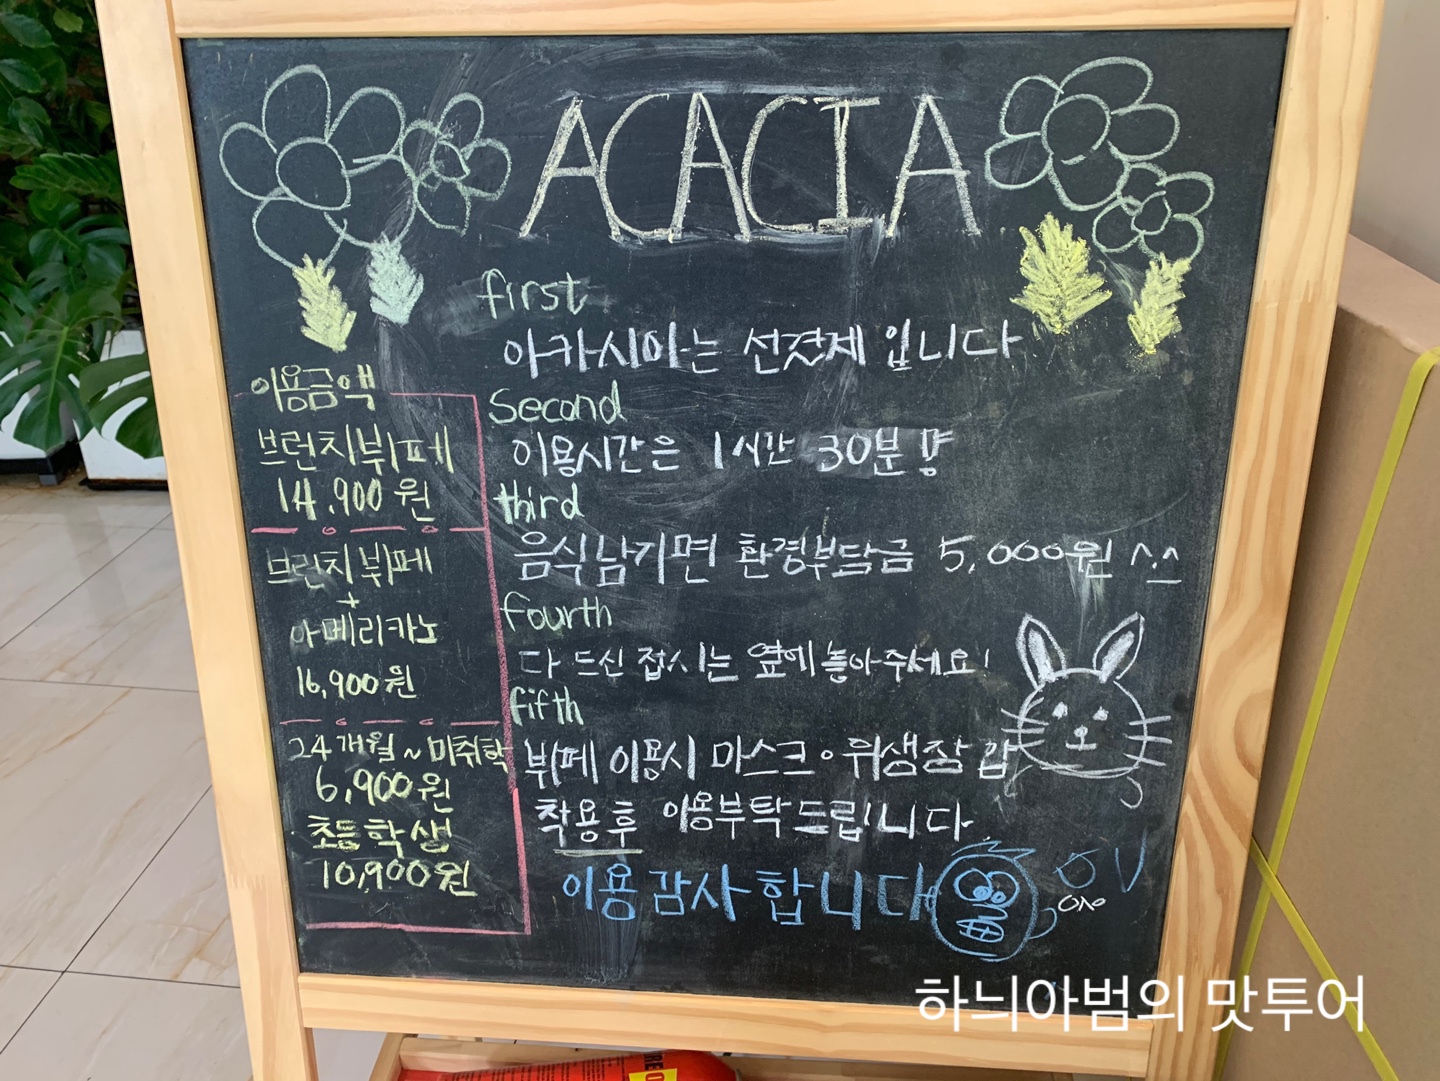 ACACIA
first
아카시아는 선결제 입니다
second
이용시간은 1시간 30분
third
음식남기면 환경부담금 5,000원 ^.^
fourth
다 드신 접시는 옆에 놓아주세요!
fifth
뷔페 이용시 마스크。위생장갑
착용후 이용부탁드립니다
이용 감사합니다
이용금액
브런치뷔페
14,900원
브런치뷔페
+
아메리카노
16,900원
24개월~미취학
6,900원
초등학생
10,900원
하늬아범의 맛투어